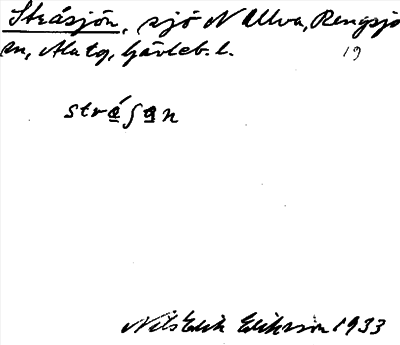 Stråsjön, sjö N Ulva, Rengsjö
sn, Ala tg, Gävleb. l.
19
strå̱ʃa̱n
Nils Erik Eliksson 1933